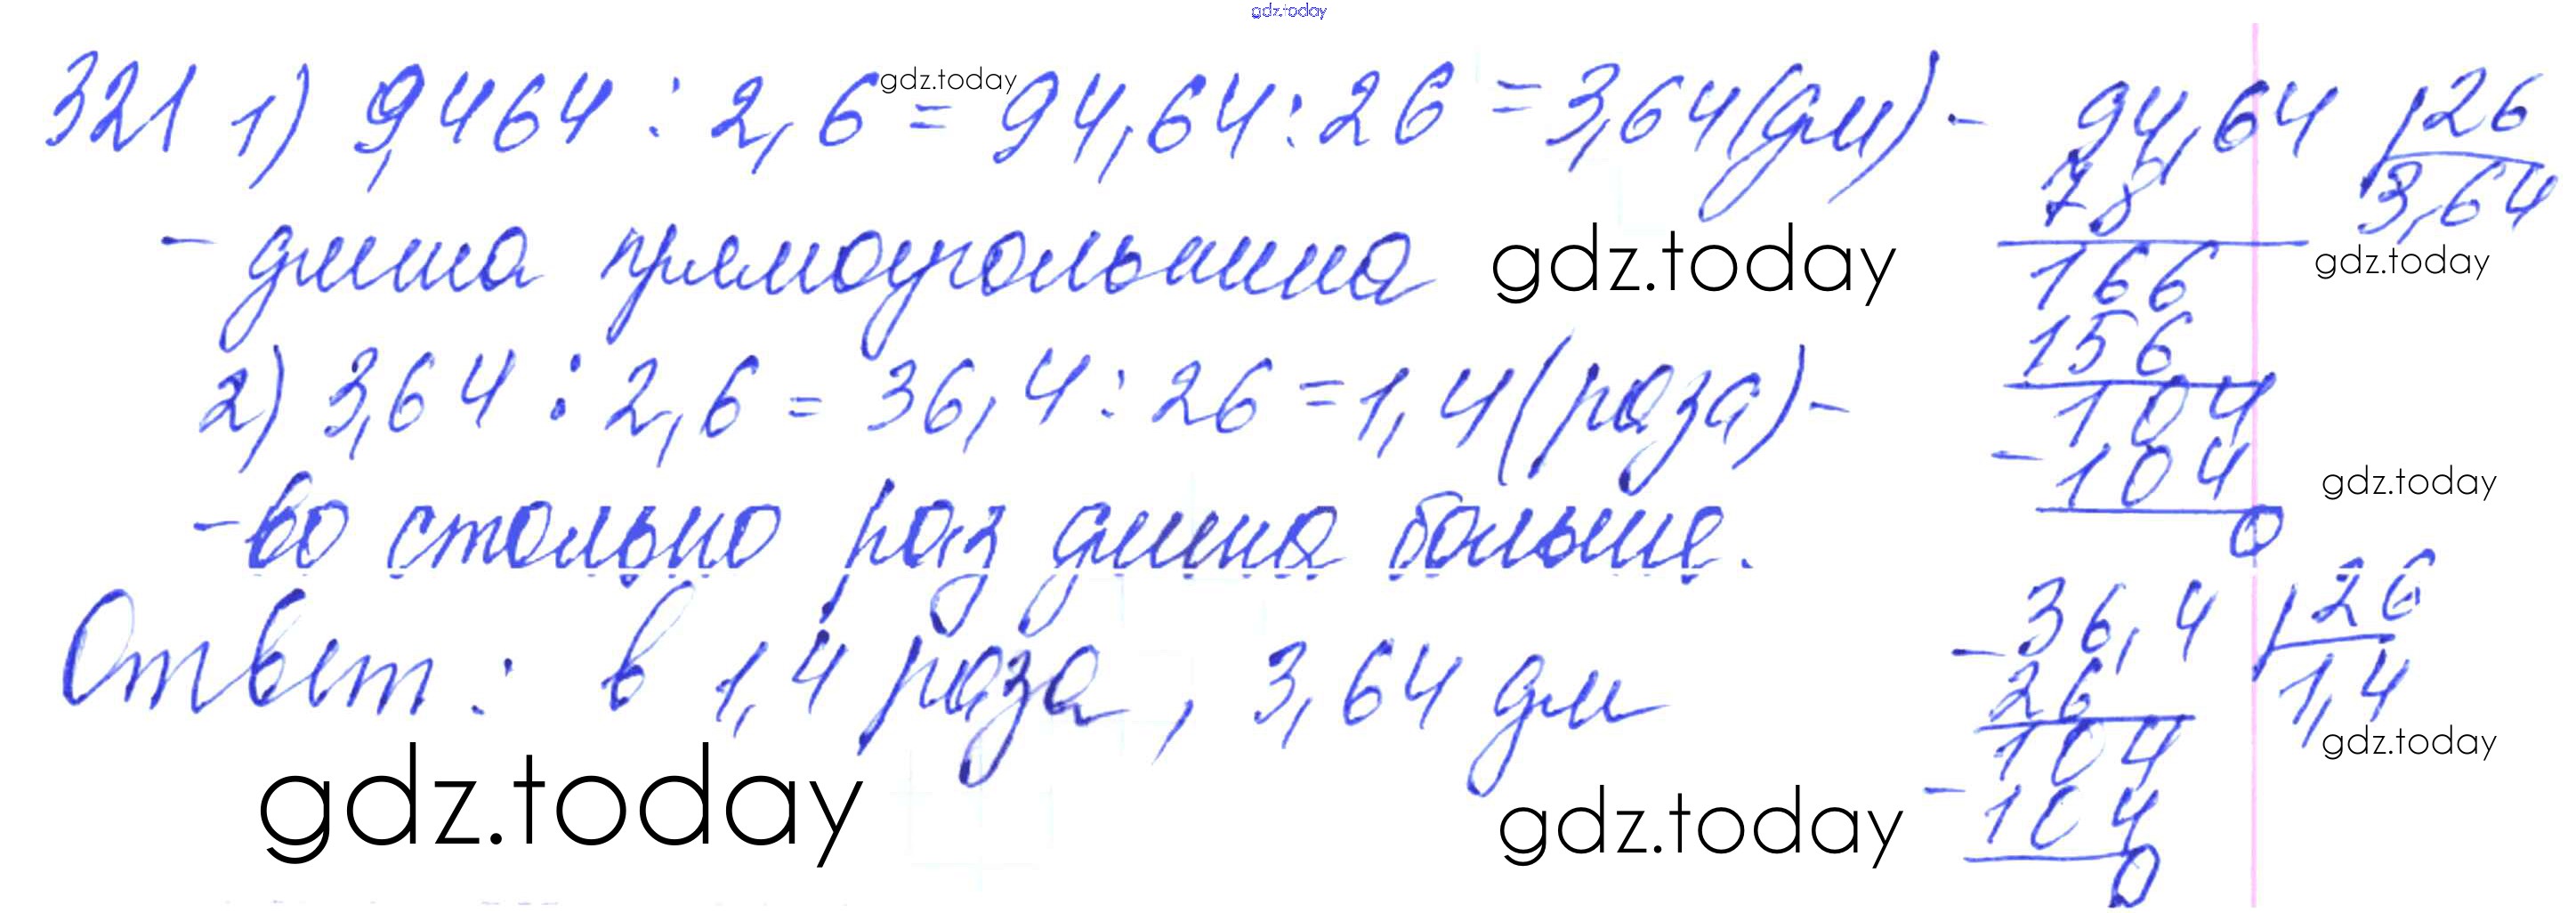 gdz.today
321 1) 9,464 : 2,6 = 94,64 : 26 = 3,64 (дм) -
gdz.today
- длина прямоугольника
gdz.today
2) 3,64 : 2,6 = 36,4 : 26 = 1,4 (раза) -
- во столько раз длина больше.
Ответ: в 1,4 раза, 3,64 дм
gdz.today
gdz.today
94,64 26
78 3,64
gdz.today
166
156
104
- 104
gdz.today
0
- 36,4 26
26 1,4
gdz.today
104
- 104
0